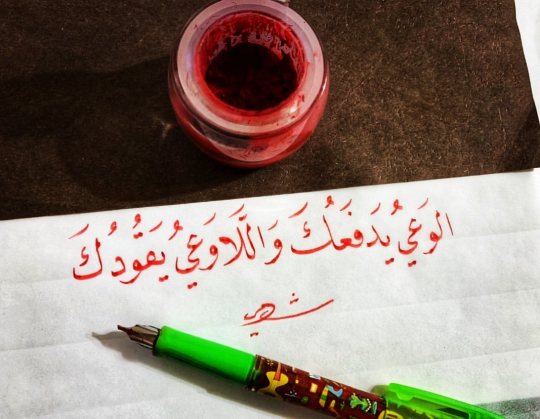 الوَعيُ يَدفَعُكَ وَاللَّاوَعيُ يَقُودُكَ